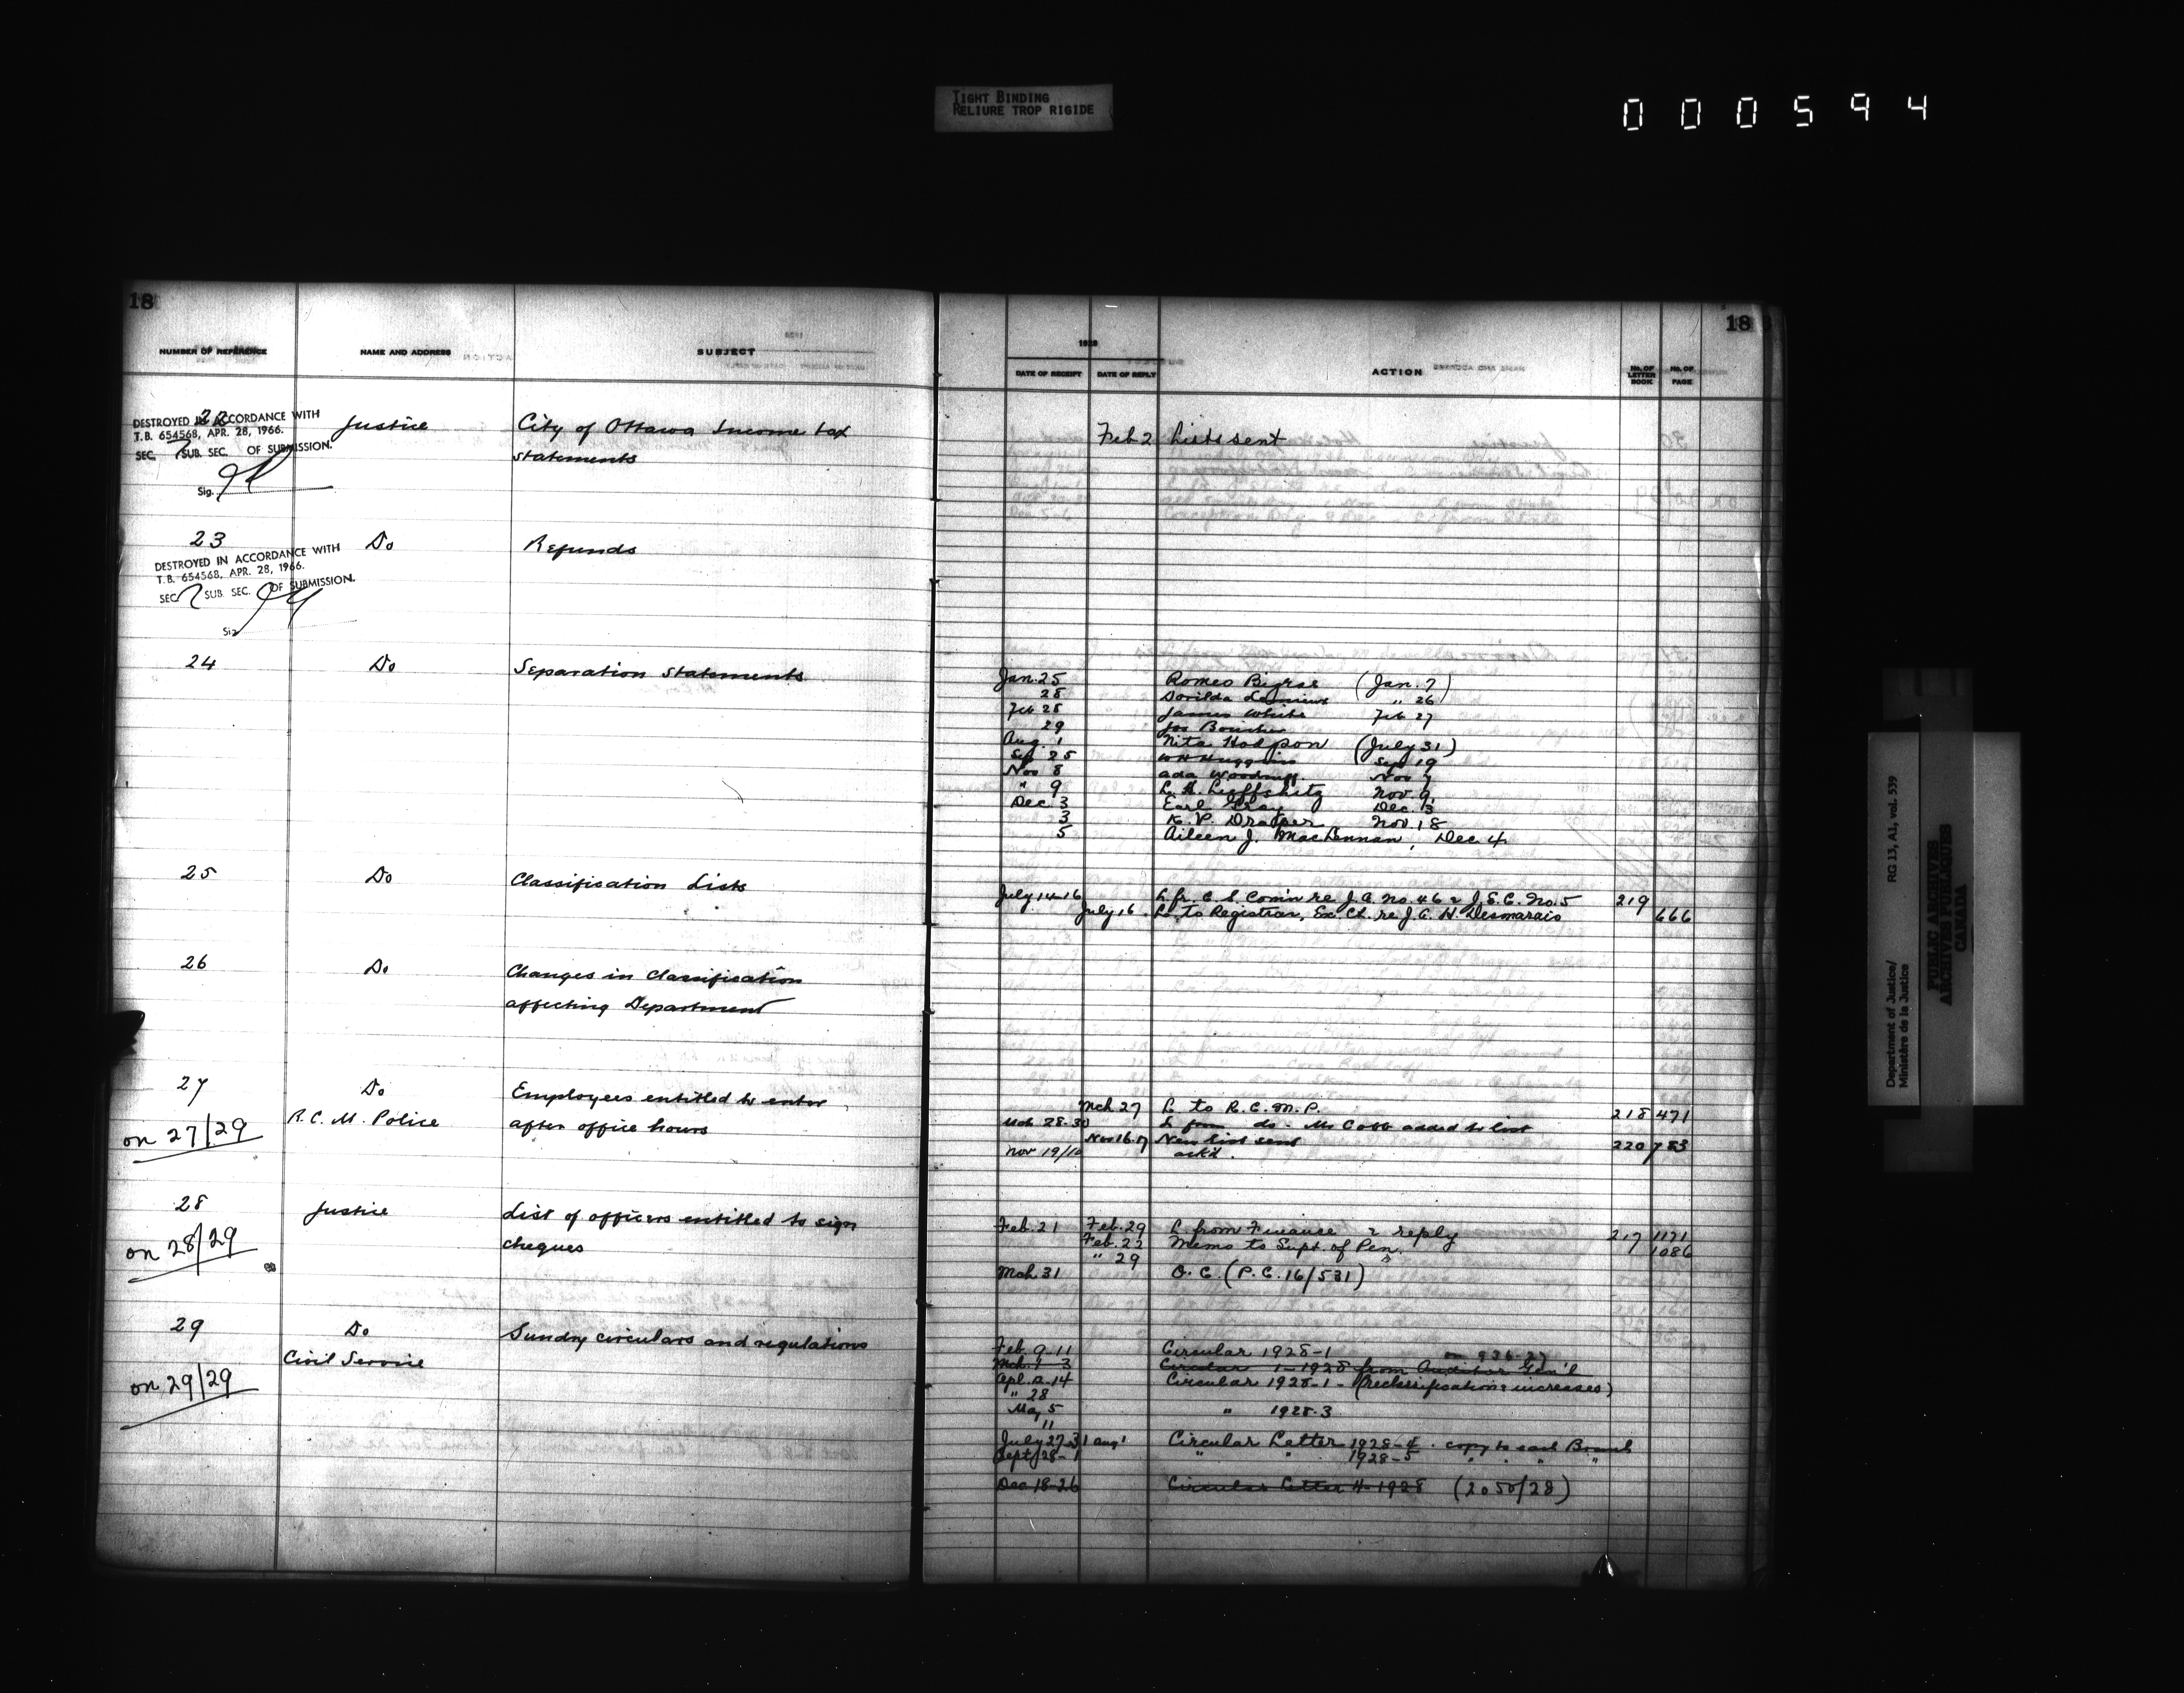 TIGHT BINDING
RELIURE TROP RIGIDE
000594
18
18
NUMBER OF REFERENCE
NAME AND ADDRESS
SUBJECT
1928
DATE OF RECEIPT
DATE OF REPLY
ACTION
No. OF LETTER BOOK
No. OF PAGE
22
Justice
City of Ottawa Income tax
statements
Feb 2 Lists sent
DESTROYED IN ACCORDANCE WITH
T.B. 654568, APR. 28, 1966.
SEC. 7 SUB. SEC. OF SUBMISSION.
Sig.
23
Do
Refunds
DESTROYED IN ACCORDANCE WITH
T.B. 654568, APR. 28, 1966.
SEC 7 SUB. SEC. OF SUBMISSION.
Sig
24
Do
Separation Statements
Jan. 25 Romeo (Jan. 7)
28 Dorilda " 26
Feb 28 James White Feb 27
29 Jos Boucher
Aug. 1 Nita Hodgson (July 31)
Sep 25 W H Huggins Sept 19
Nov 8 Ada Woodruff Nov 7
" 9 Nov. 9
Dec 3 Earl Gray Dec. 3
3 K. P. Draper Nov. 18
5 Aileen J. MacLennan, Dec 4
25
Do
Classification Lists
July 14-16 L. fr. C. S. Com'n re J.A. No. 46 & J.E.C. No. 5 219
July 16 L. to Registrar, Ex. Ct. re J.A. H. Desmarais 666
26
Do
Changes in Classification
affecting Department
27
Do
Employees entitled to enter
R.C.M. Police
after office hours
on 27/29
Mch 27 L to R.C.M.P. 218 471
Mch 28-30 L from do - Mr Cobb added to list
Nov 16-17 New list sent 220 783
Nov 19/10 ack'd.
28
Justice
List of officers entitled to sign
cheques
on 28/29
Feb. 21 Feb. 29 L from Finance & reply 217 1171
Feb. 22 Memo to Supt. of Pen. 1086
" 29
Mch 31 O.C. (P.C. 16/531)
29
Do
Sundry circulars and regulations
Civil Service
on 29/29
Feb. 9-11 Circular 1928-1
on 936-27
Mch. 1-3 Circular 1-1928 from Auditor Gen'l
Apl. 12-14 Circular 1928-1- (Reclassification & increases)
" 28
May 5 " 1928-3
11
July 27-31 Aug 1 Circular Letter 1928-4. copy to each Branch
Sept 28-1 " " 1928-5 " " " "
Dec 18-26 Circular Letter 4-1928 (2050/28)
Department of Justice/
Ministère de la Justice
RG 13, A1, vol. 539
PUBLIC ARCHIVES
ARCHIVES PUBLIQUES
CANADA